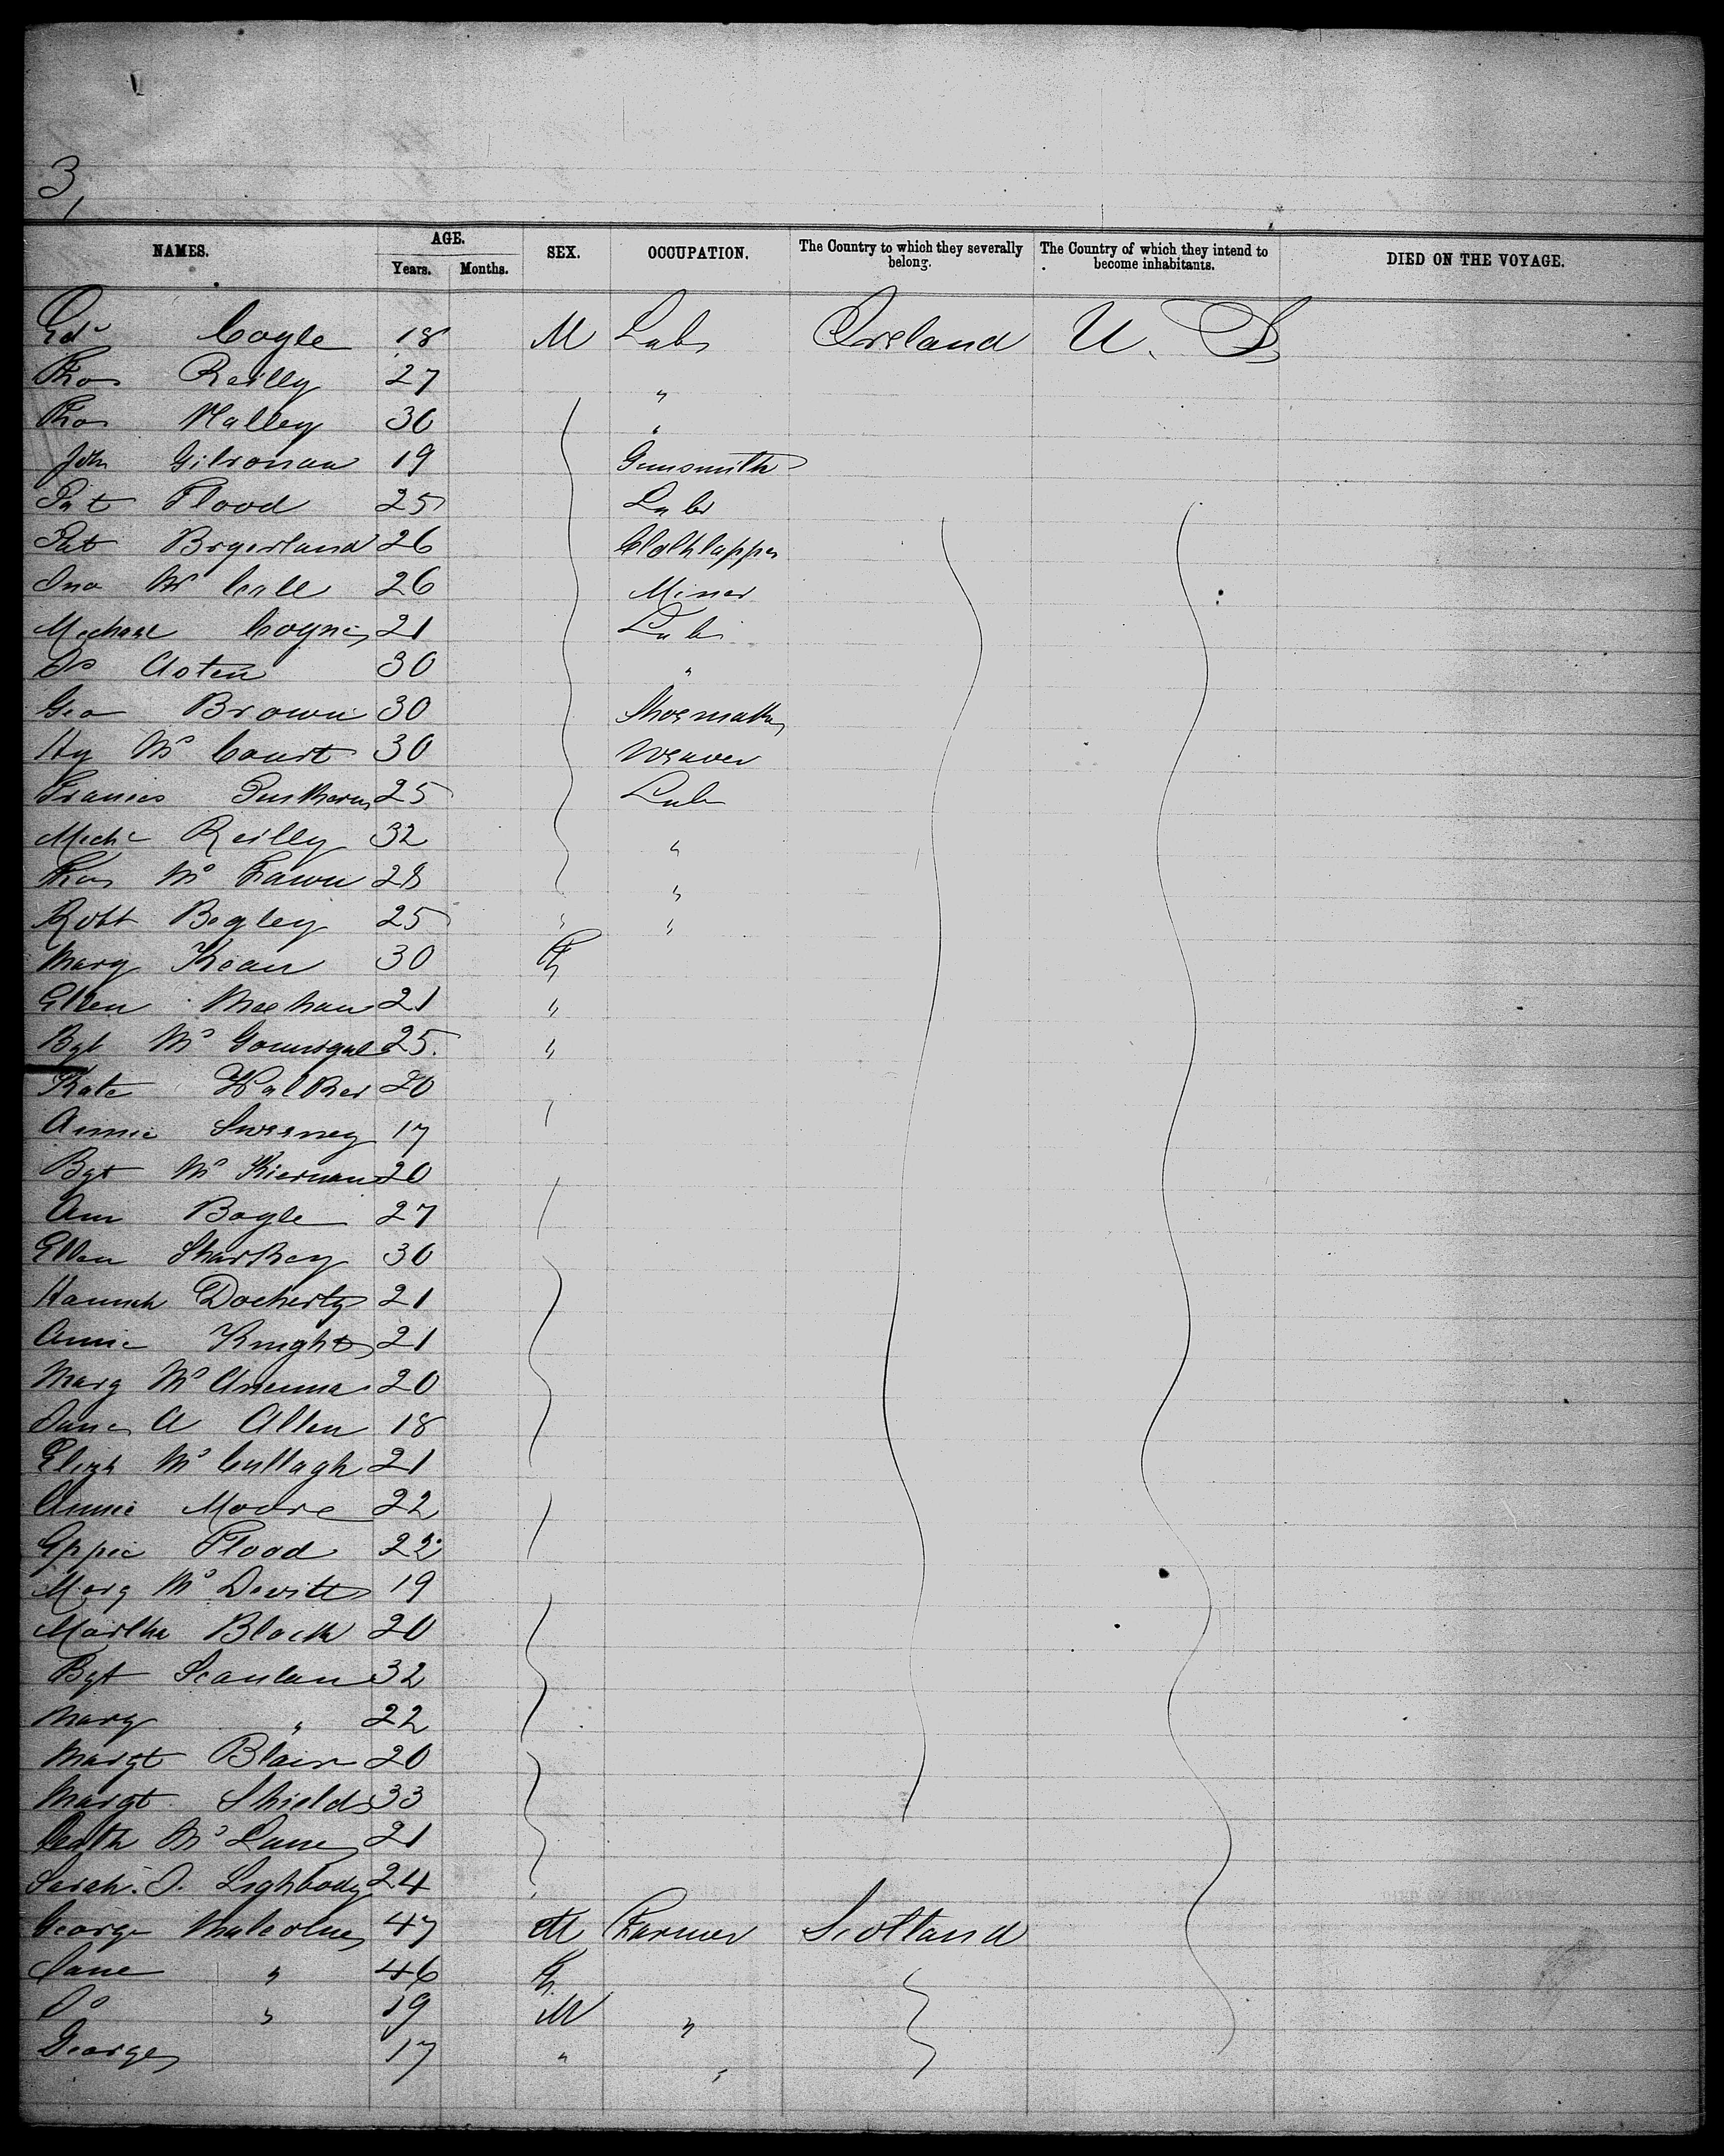 3,
NAMES. AGE. SEX. OCCUPATION. The Country to which they severally belong. The Country of which they intend to become inhabitants. DIED ON THE VOYAGE.
Years. Months.
Edd Coyle 18 M Labr Ireland U. S
Thos Reilly 27 "
Thos Malley 30 "
John Gilronan 19 Gunsmith
Pat Flood 25 Labr
Pat Bryerland 26 Clothlapper
Jno Mc Call 26 Miner
Michael Coyne 21 Labr
Js Asten 30 "
Geo Brown 30 Shoemaker
Hy Mc Court 30 Weaver
Francis 25 Labr
Michl Reilly 32 "
Thos Mc Fawn 28 "
Robt Begley 25 " "
Mary Kean 30 F
Ellen Meehan 21 "
Bgt Mc Gonnigal 25 "
Kate Walker 20
Annie Sweeney 17
Bgt Mc Kiernan 20
Ann Boyle 27
Ellen Sharkey 30
Hannah Docherty 21
Annie Knight 21
Mary Mc Anenna 20
Jane A Allen 18
Eliza Mc Cullagh 21
Annie Moore 22
Eppie Flood 22
Mary Mc Devitt 19
Martha Black 20
Bgt Scanlan 32
Mary " 22
Margt Blair 20
Margt Shields 33
Cath Mc Lane 21
Sarah J. Lighbody 24
George Malcolm 47 M Farmer Scotland
Jane " 46 F
Jo " 19 M "
George 17 " "